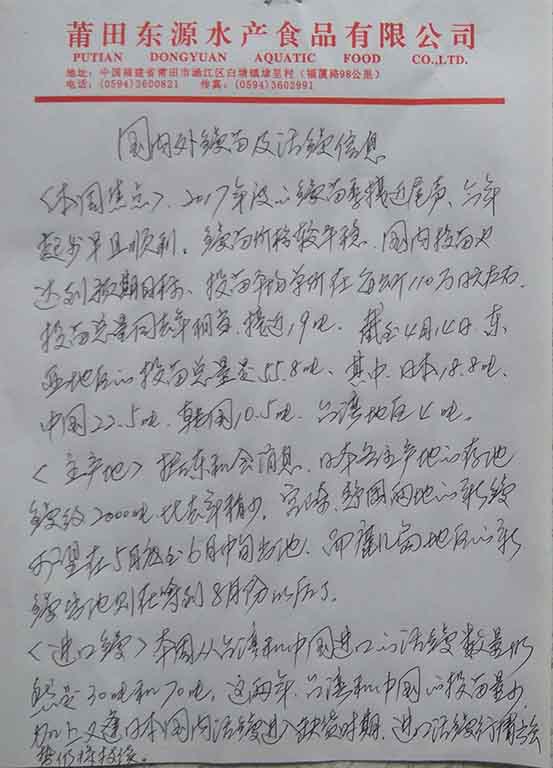 莆田东源水产食品有限公司
PUTIAN DONGYUAN AQUATIC FOOD CO.,LTD.
地址：中国福建省莆田市涵江区白塘镇埭里村（福厦路98公里）
电话：(0594)3600821 传真：(0594)3602991
国内外鳗苗及活鳗信息
<本周焦点>、2017年度的鳗苗季接近尾声、今年
起步早且顺利。鳗苗价格较平稳、国内投苗也
达到预期目标、投苗平均单价在每公斤110万日元左右.
投苗总量同去年相当、接近19吨. 截至4月14日、东
亚地区的投苗总量是55.8吨、其中、日本18.8吨、
中国22.5吨、韩国10.5吨、台湾地区4吨。
<主产地> 据东和会消息、日本各主产地的存池
鳗约2000吨比去年稍少. 宫崎、静冈两地的新鳗
有望在5月底至6月中旬出池、而鹿儿岛地区的新
鳗出池则在等到8月份以后了
<进口鳗> 本周从台湾和中国进口的活鳗数量仍
然是30吨和70吨, 这两年、台湾和中国的投苗量少
加上又逢日本国内活鳗进入缺货时期、进口活鳗行情
势仍将持续。